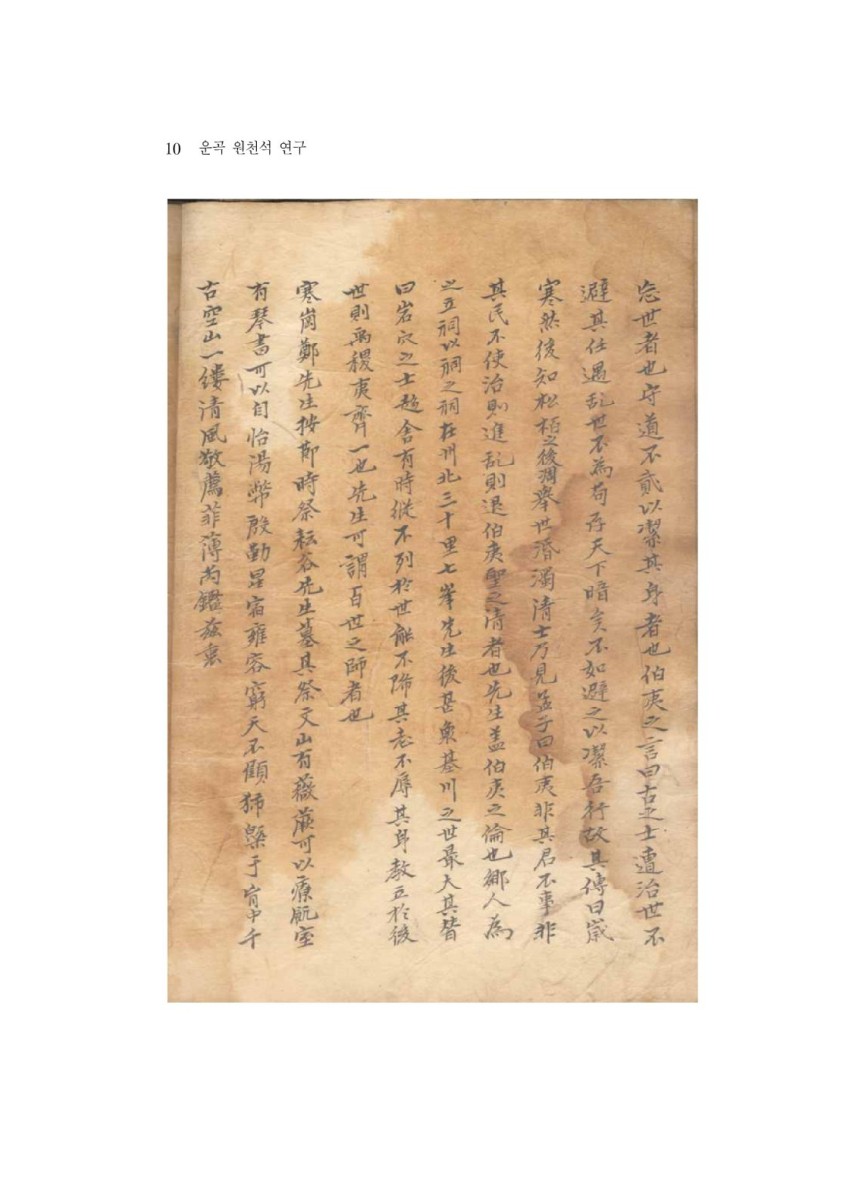 10 운곡 원천석 연구
忘世者也守道不貳以潔其身者也伯夷之言曰古之士遭治世不
避其任遇乱世不為苟存天下暗矣不如避之以潔吾行故其傳曰歲
寒然後知松栢之後凋擧世溷濁清士乃見孟子曰伯夷非其君不事非
其民不使治則進乱則退伯夷聖之清者也先生盖伯夷之倫也鄕人為
之立祠以祠之祠在州北三十里七峯先生後甚衆基川之世最大其贊
曰岩穴之士趍舍有時縱不列於世能不降其志不辱其身敎立於後
世則禹稷夷齊一也先生可謂百世之師者也
寒岡鄭先生按節時祭耘谷先生墓其祭文山有薇蕨可以療飢室
有琴書可以自怡湯幣殷勤星宿雍容窮天不顧 于胷中千
古空山一縷清風敬薦菲薄尚鑑玆衷